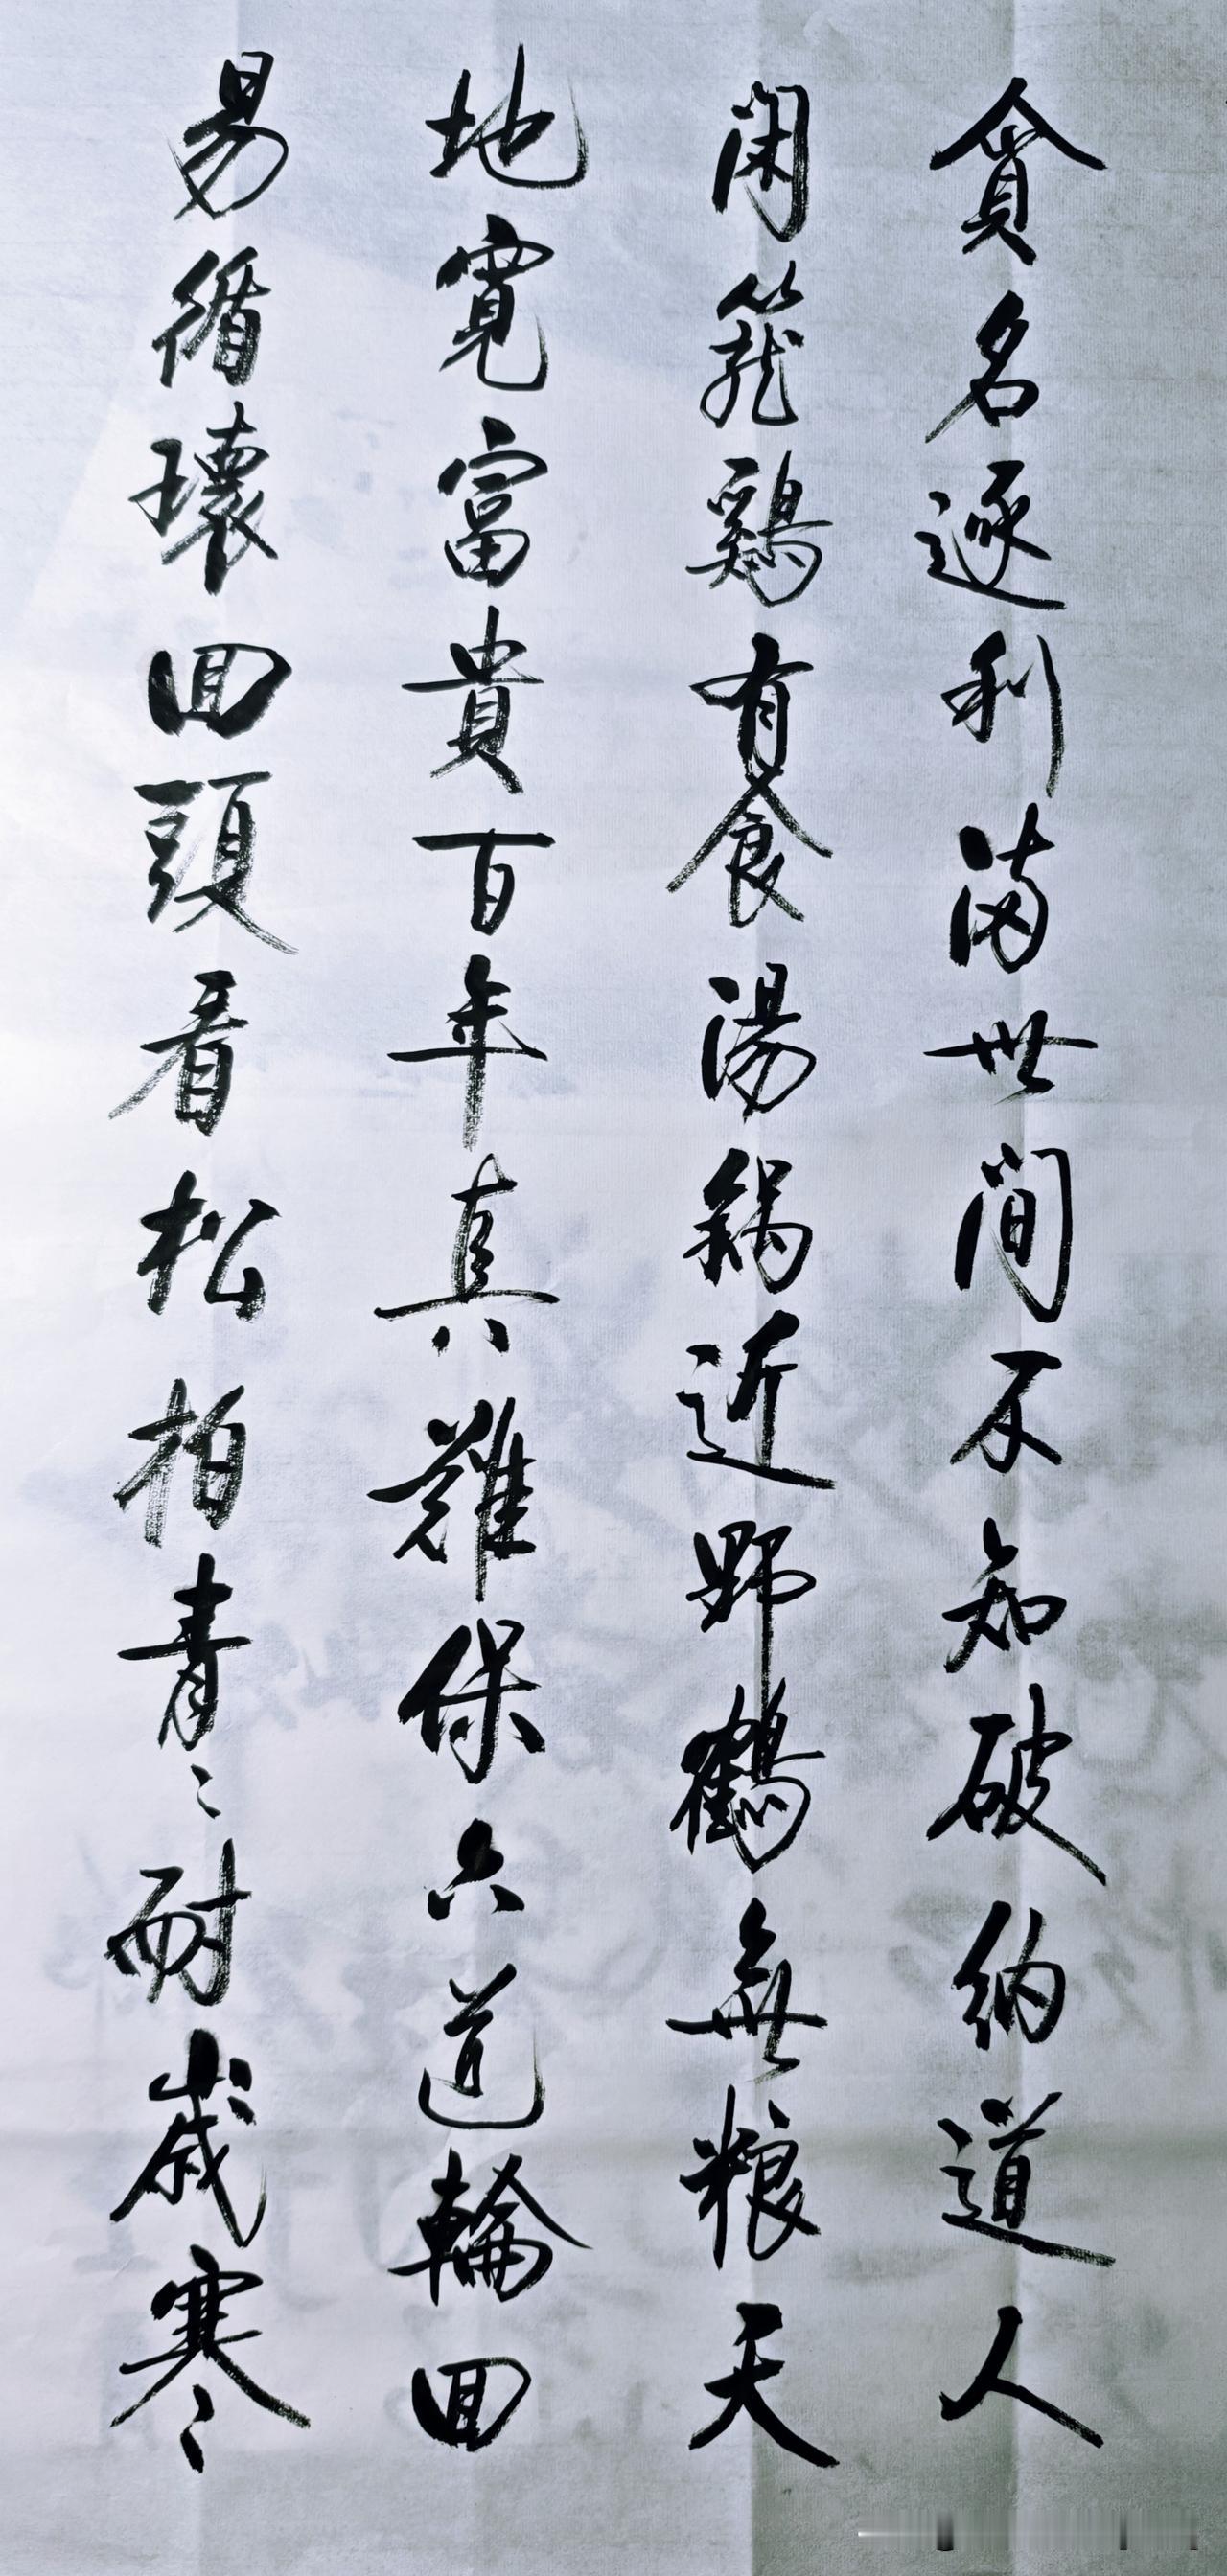 貪名逐利滿世間不知破納道人
閑籠鷄有食湯鍋近野鶴無粮天
地寬富貴百年真難保六道輪回
易循環回頭看松柏青〻耐歲寒